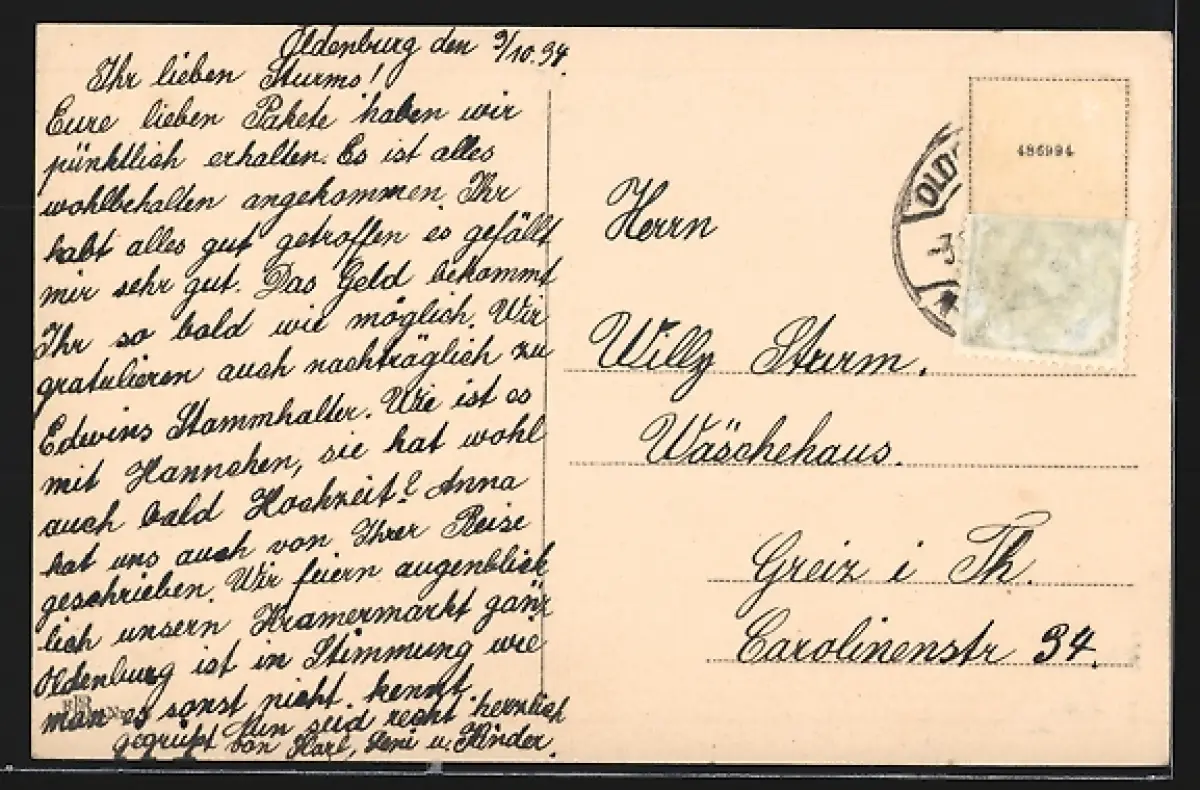 Oldenburg den 3/10.34.
Ihr lieben Sturms!
Eure lieben Pakete haben wir
pünktlich erhalten. Es ist alles
wohlbehalten angekommen. Ihr
habt alles gut getroffen es gefällt
mir sehr gut. Das Geld bekommt
Ihr so bald wie möglich. Wir
gratulieren auch nachträglich zu
Edwins Stammhalter. Wie ist es
mit Hannchen, sie hat wohl
auch bald Hochzeit? Anna
hat uns auch von Ihrer Reise
geschrieben. Wir feiern augenblick
lich unsern Kramermarkt ganz
Oldenburg ist in Stimmung wie
man es sonst nicht kennt.
Nun seid recht herzlich
gegrüßt von Karl, Leni u. Kinder.
486994
OLD
3.
Herrn
Willy Sturm.
Wäschehaus.
Greiz i Th.
Carolinenstr 34.